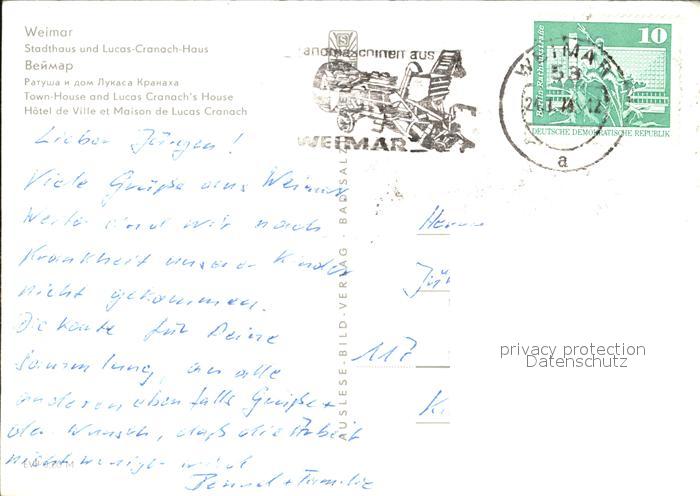 Weimar
Stadthaus und Lucas-Cranach-Haus
Веймар
Ратуша и дом Лукаса Кранаха
Town-House and Lucas Cranach's House
Hôtel de Ville et Maison de Lucas Cranach
Landmaschinen aus
WEIMAR
WEIMAR
a
10
DEUTSCHE DEMOKRATISCHE REPUBLIK
Lieber Jürgen!
Viele Grüße aus Weimar
sind wir nach
Krankheit unserer Kinder
nicht gekommen.
Die Karte für Deine
Sammlung, an alle
anderen ebenfalls Grüße +
den Wunsch, daß die Arbeit
nicht weniger wird
+ Familie
AUSLESE-BILD-VERLAG · BAD SALZ
Herrn
117
privacy protection
Datenschutz